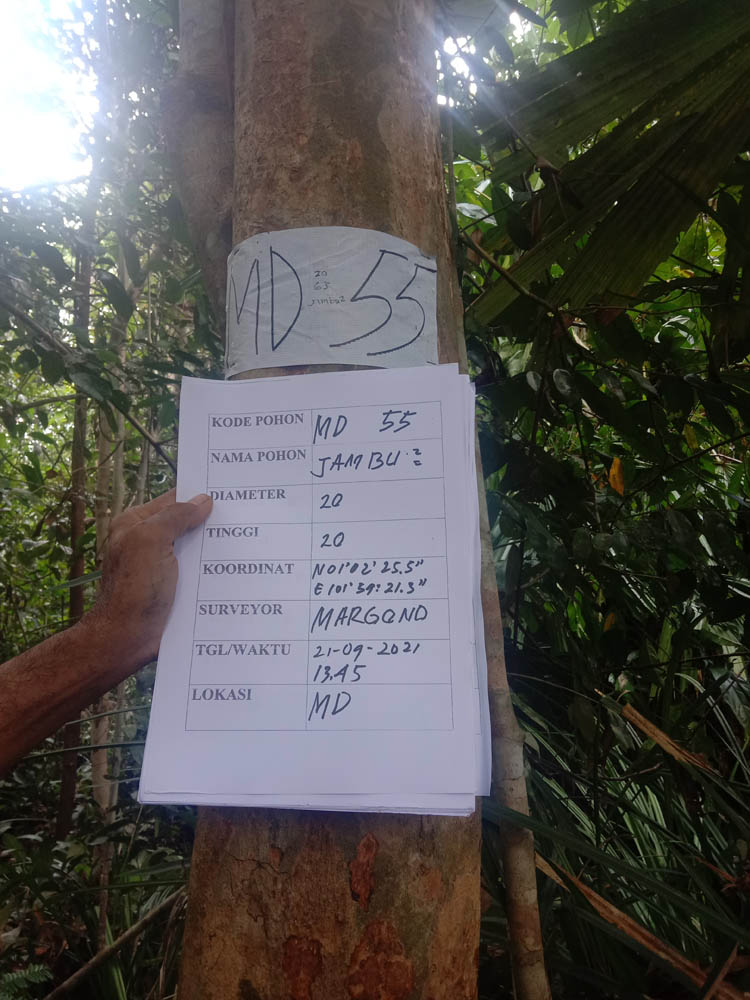 MD 55
20
63
Jambu2
KODE POHON MD 55
NAMA POHON JAMBU :2=
DIAMETER 20
TINGGI 20
KOORDINAT N 01°02' 25.5"
E 101° 59' 21.3"
SURVEYOR MARGONO
TGL/WAKTU 21-09-2021
13.45
LOKASI MD